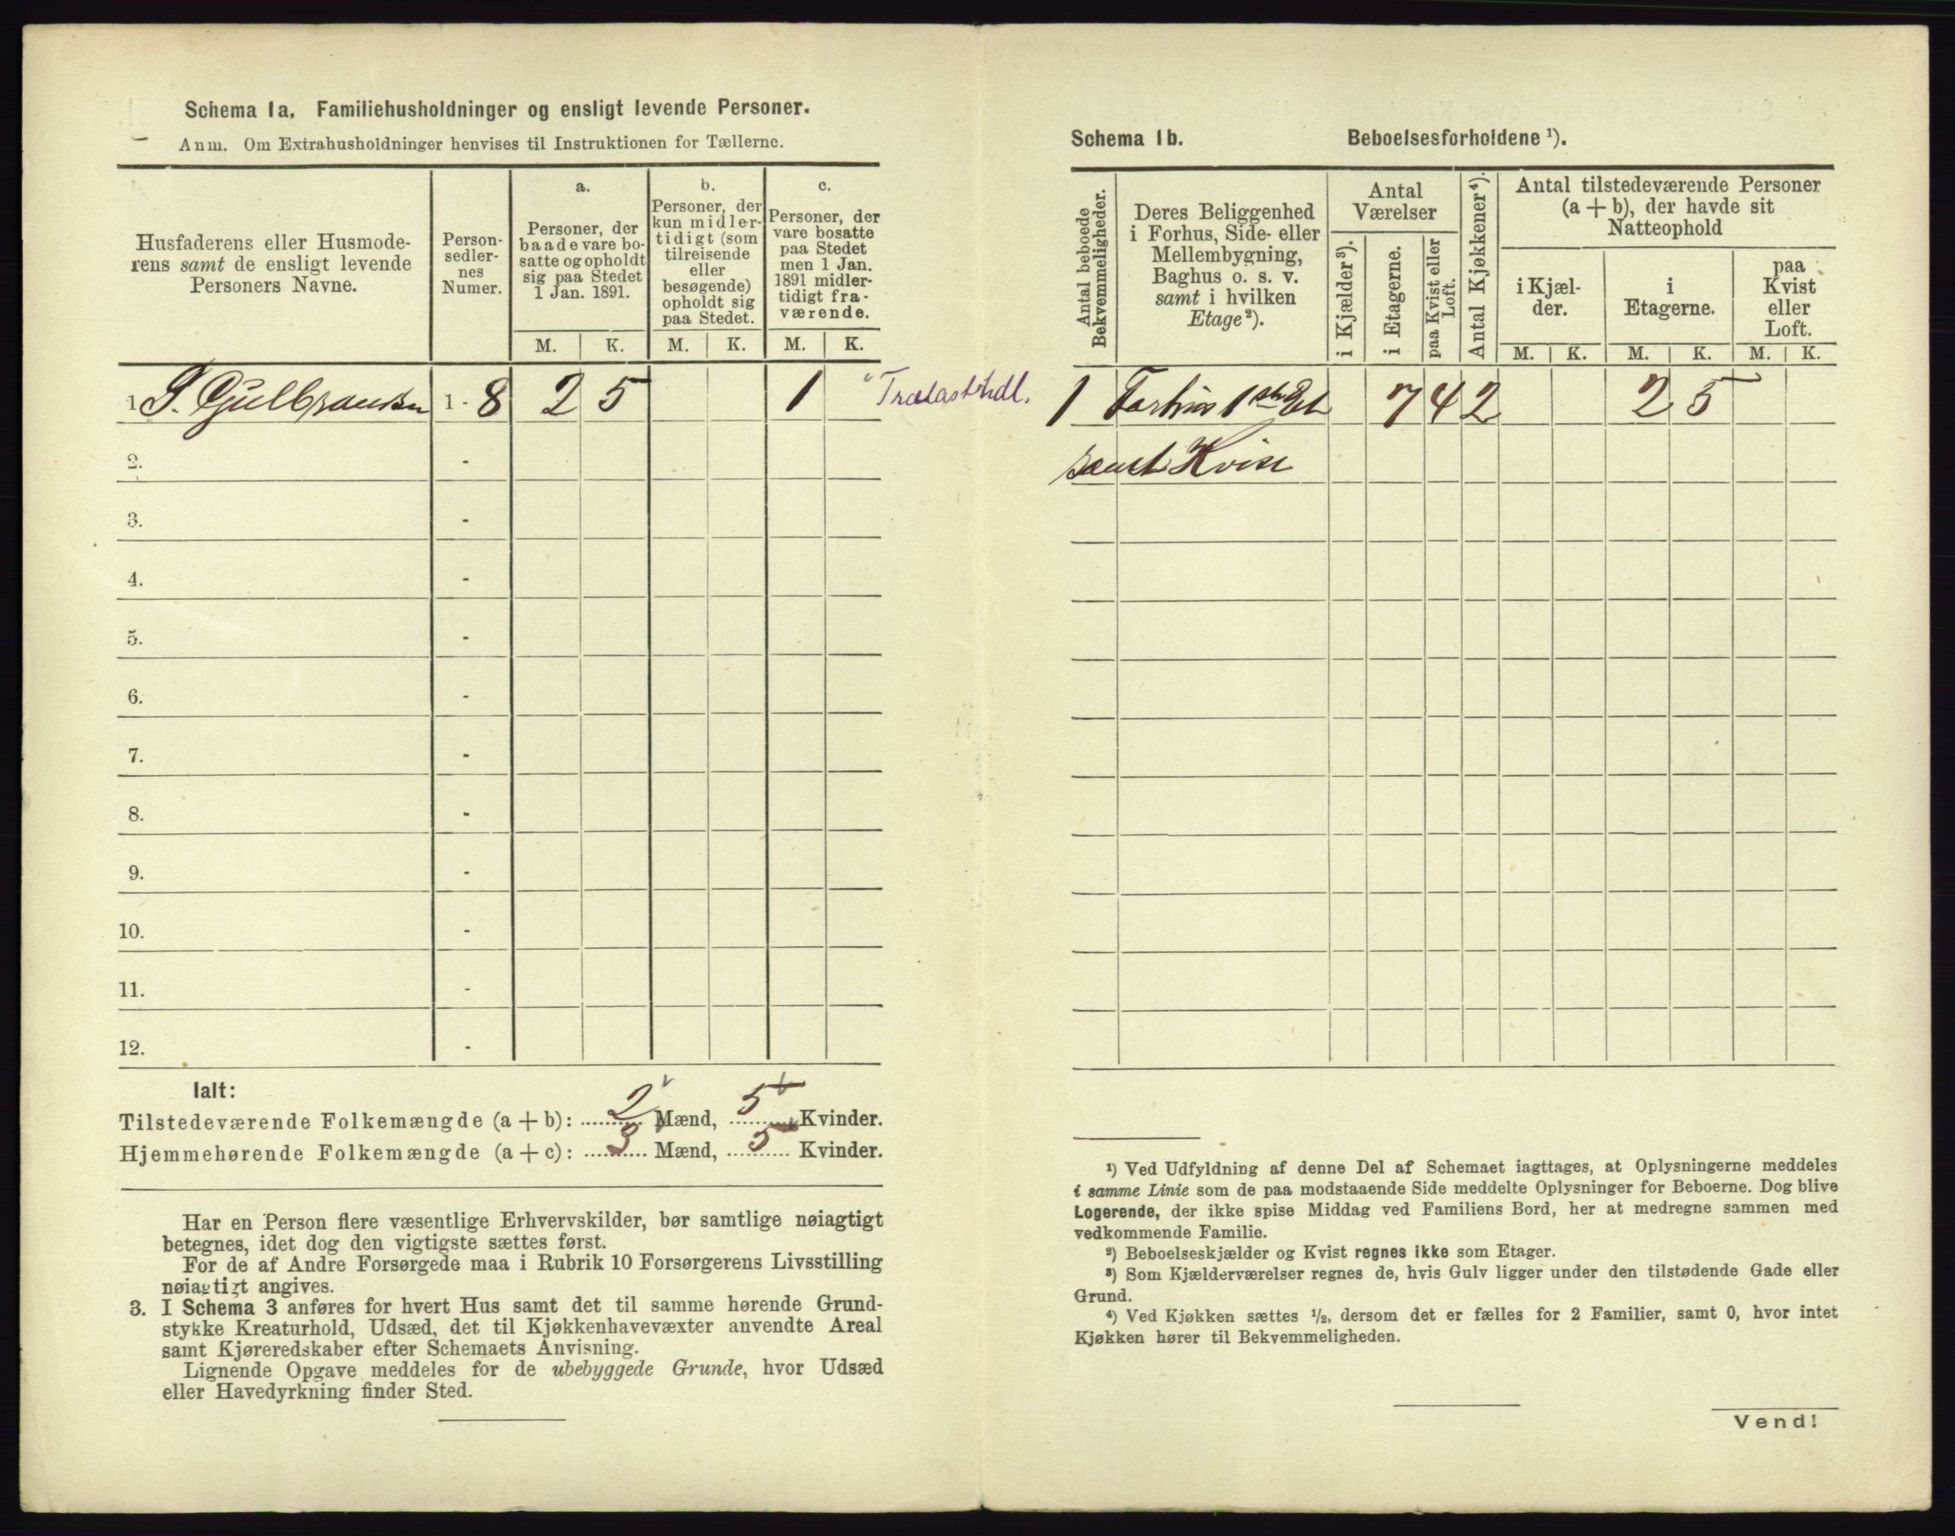 Schema 1a. Familiehusholdninger og ensligt levende Personer.
Anm. Om Extrahusholdninger henvises til Instruktionen for Tællerne.
Husfaderens eller Husmode-
rens samt de ensligt levende
Personers Navne.
Person-
sedler-
nes
Numer.
a.
Personer, der
baade vare bo-
satte og opholdt
sig paa Stedet
1 Jan. 1891.
b.
Personer, der
kun midler-
tidigt (som
tilreisende
eller
besøgende)
opholdt sig
paa Stedet.
c.
Personer, der
vare bosatte
paa Stedet
men 1 Jan.
1891 midler-
tidigt fra-
værende.
M. K. M. K. M. K.
1. S. Gulbransen 1 - 8 2 5 1 Trælasthdl.
2. -
3. -
4. -
5. -
6. -
7. -
8. -
9. -
10. -
11. -
12. -
Ialt:
Tilstedeværende Folkemængde (a + b): 2 Mænd, 5 Kvinder.
Hjemmehørende Folkemængde (a + c): 3 Mænd, 5 Kvinder.
Har en Person flere væsentlige Erhvervskilder, bør samtlige nøiagtigt
betegnes, idet dog den vigtigste sættes først.
For de af Andre Forsørgede maa i Rubrik 10 Forsørgerens Livsstilling
nøiagtigt angives.
3. I Schema 3 anføres for hvert Hus samt det til samme hørende Grund-
stykke Kreaturhold, Udsæd, det til Kjøkkenhavevæxter anvendte Areal
samt Kjøreredskaber efter Schemaets Anvisning.
Lignende Opgave meddeles for de ubebyggede Grunde, hvor Udsæd
eller Havedyrkning finder Sted.
Schema 1b. Beboelsesforholdene ¹).
Antal beboede
Bekvemmeligheder.
Deres Beliggenhed
i Forhus, Side- eller
Mellembygning,
Baghus o. s. v.
samt i hvilken
Etage ²).
Antal
Værelser
i Kjælder ³).
i Etagerne.
paa Kvist eller
Loft.
Antal Kjøkkener ⁴).
Antal tilstedeværende Personer
(a + b), der havde sit
Natteophold
i Kjæl-
der.
i
Etagerne.
paa
Kvist
eller
Loft.
M. K. M. K. M. K.
1 Forhus 1ste Et 7 4 2 2 5
samt Kvist
¹) Ved Udfyldning af denne Del af Schemaet iagttages, at Oplysningerne meddeles
i samme Linie som de paa modstaaende Side meddelte Oplysninger for Beboerne. Dog blive
Logerende, der ikke spise Middag ved Familiens Bord, her at medregne sammen med
vedkommende Familie.
²) Beboelseskjælder og Kvist regnes ikke som Etager.
³) Som Kjælderværelser regnes de, hvis Gulv ligger under den tilstødende Gade eller
Grund.
⁴) Ved Kjøkken sættes ½, dersom det er fælles for 2 Familier, samt 0, hvor intet
Kjøkken hører til Bekvemmeligheden.
Vend!